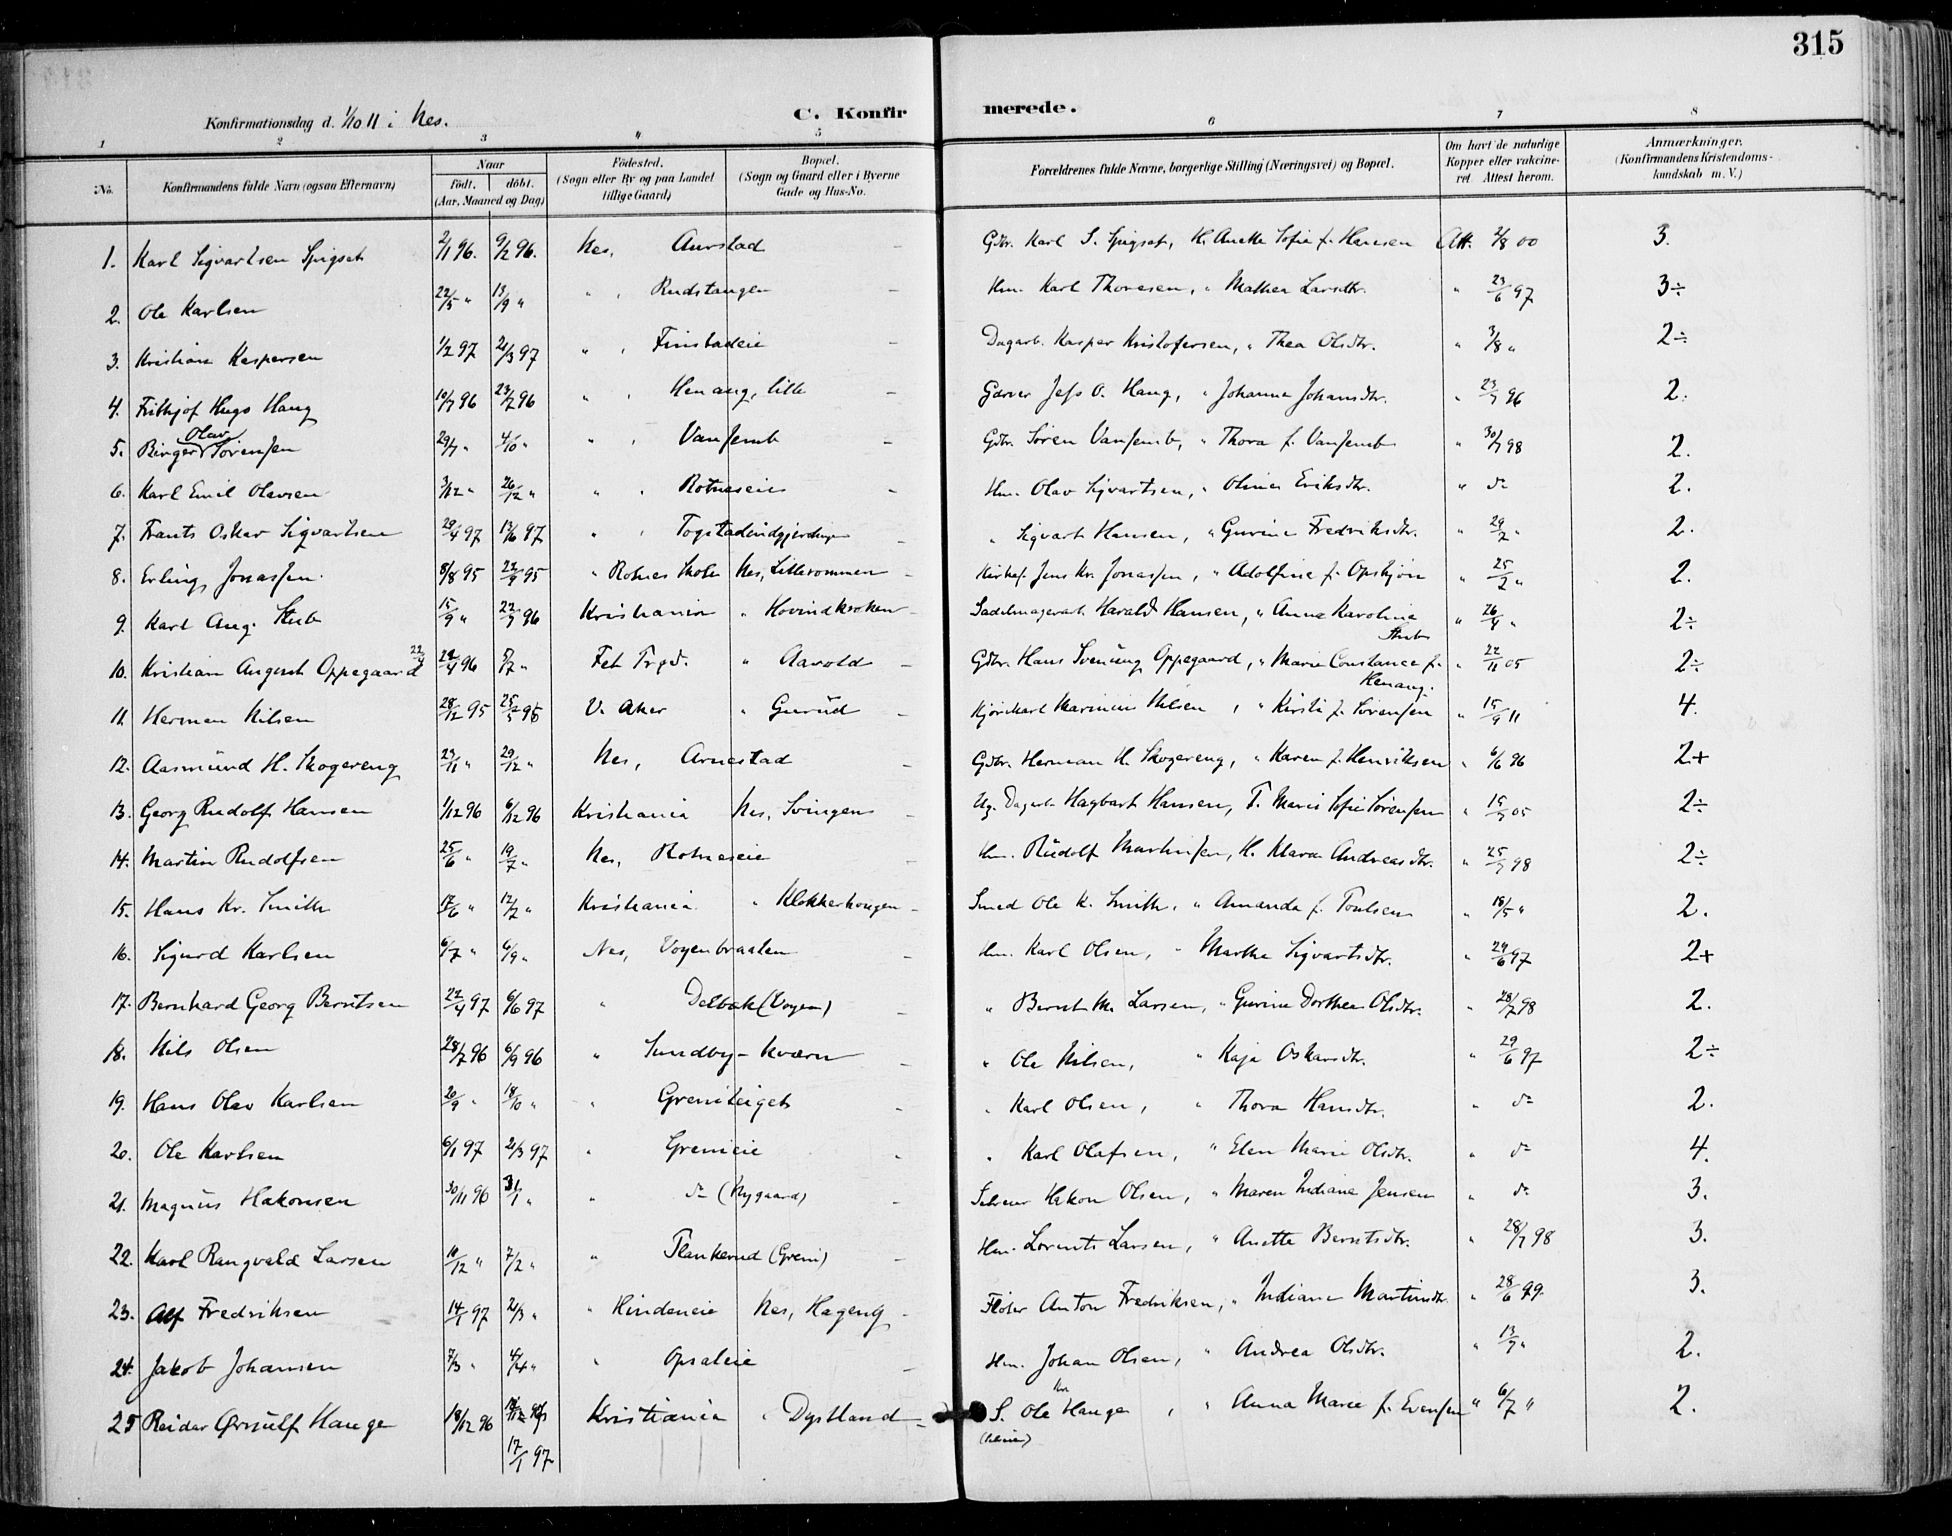 315
Konfirmationsdag d. 1/10 11 i Nes. C. Konfirmerede.
1 2 3 " 5 6 7 8
No. Konfirmandens fulde Navn (ogsaa Efternavn) Naar födt. döbt. (Aar, Maaned og Dag) Födested. (Sogn eller By og paa Landet tillige Gaard) Bopæl. (Sogn og Gaard eller i Byerne Gade og Hus-No. Forældrenes fulde Navne, borgerlige Stilling (Næringsvei) og Bopæl. Om havt de naturlige Kopper eller vakcineret. Attest herom. Anmærkninger. (Konfirmandens Kristendomskundskab m. V.)
1. Karl Sigvartsen Spigset 2/1 96. 9/2 96. Nes, Aurstad – Gdbr. Karl S. Spigset, H. Anette Sofie f. Hansen Att. 2/8 00 3.
2. Ole Karlsen 22/5 " 13/9 " " , Rudstangen – Hm. Karl Thoresen, " Mathea Larsdtr. " 23/6 97 3÷
3. Kristian Kaspersen 1/2 97 21/3 97 " , Finstadeie – Dagarb. Kasper Kristofersen, " Thea Olsdtr. " 3/8 " 2÷
4. Frithjof Hugo Haug 10/7 96 23/7 96 " , Henaug, lille – Garver Jess O. Haug, " Johanne Johansdtr. " 23/7 96 2.
5. Birger Olav Sörensen 29/7 " 4/10 " " , Vansemb – Gdbr. Sören Vansemb, " Thora f. Vansemb " 30/7 98 2.
6. Karl Emil Olavsen 3/12 " 26/12 " " , Rotneseie – Hm. Olav Sigvartsen, " Oline Eriksdtr. " do 2.
7. Frants Oskar Sigvartsen 29/4 97 13/6 97 " , – " Sigvart Hansen, " Gurine Fredriksdtr. " 29/7 " 2.
8. Erling Jonassen. 8/8 95 22/9 95 " Rotnes Skole Nes, Lillerommen – Kirkes. Jens Kr. Jonassen, " Adolfine f. Opskjön " 25/2 " 2.
9. Karl Aug. Stub 15/9 " 22/7 96 Kristiania " Hovindkroken – Sadelmagerarb. Harald Hansen, " Anna Karoline Stub " 26/8 " 2÷
10. Kristian August Oppegaard 22/4 96 5/7 " Fet Trgd. " Aavold – Gdbr. Hans Svenung Oppegaard, " Marie Constance f. Henaug. " 22/11 05 2÷
11. Herman Nilsen 28/12 95 V. Aker " Gurud – Kjörekarl Marinius Nilsen, " Kirsti f. Sörensen " 15/9 11 4.
12. Aasmund H. Skogereng 23/11 " 29/12 " Nes, Arnestad – Gdbr. Herman H. Skogereng, " Karen f. Henriksen " 6/6 96 2+
13. Georg Rudolf Hansen 1/12 96 6/12 96 Kristiania Nes, Svingen – Ug. Dagarb. Hagbart Hansen, F. Marie Sofie Sörensen " 15/7 05 2÷
14. Martin Rudolfsen 25/6 " 19/7 " Nes, Rotneseie – Hm. Rudolf Martinsen, H. Klara Andreasdtr. " 25/7 98 2÷
15. Hans Kr. Smith 17/6 " 12/7 " Kristiania " Klokkerhougen – Smed Ole K. Smith, " Amanda f. Poulsen " 18/5 " 2.
16. Sigurd Karlsen 6/7 " 6/9 " Nes, Vogenbraaten – Hm. Karl Olsen, " Marthe Sigvartsdtr. " 24/6 97 2+
17. Bernhard Georg Berntsen 22/4 97 6/6 97 " Delbæk (Vogen) – " Bernt M. Larsen, " Gurine Dorthea Olsdtr. " 28/7 98 2.
18. Nils Olsen 28/7 96 6/9 96 " Sundby-kværn – " Ole Nilsen, " Kaja Oskarsdtr. " 29/6 97 2÷
19. Hans Olav Karlsen 20/9 " 18/10 " " Greniteiget – " Karl Olsen, " Thora Hansdtr. " do 2.
20. Ole Karlsen 6/1 97 21/3 97 " Grenieie – " Karl Olafsen, " Elen Marie Olsdtr. " do 4.
21. Magnus Hakonsen 30/11 96 31/1 " " do (Nygaard) – Hakon Olsen, " Maren Indiane Jensen " do 3.
22. Karl Rangvald Larsen 10/12 " 7/2 " " Flankerud (Greni) – Hm. Lorents Larsen, " Anette Berntsdtr. " 28/7 98 3.
23. Alf Fredriksen 14/1 97 21/3 " " Hindeneie Nes, Hageng – Flöter Anton Fredriksen, " Indiane Martinsdtr. " 28/6 99 3.
24. Jakob Johansen 7/3 " 4/4 " " Opsaleie – Hm. Johan Olsen, " Andrea Olsdtr. " 13/7 " 2.
25 Reidar Ørnulf Hauge 18/12 96 17/1 97 Kristiania " Dystland – S. Ole Kr. Hauge, " Anna Marie f. Evensen " 6/7 " 2.